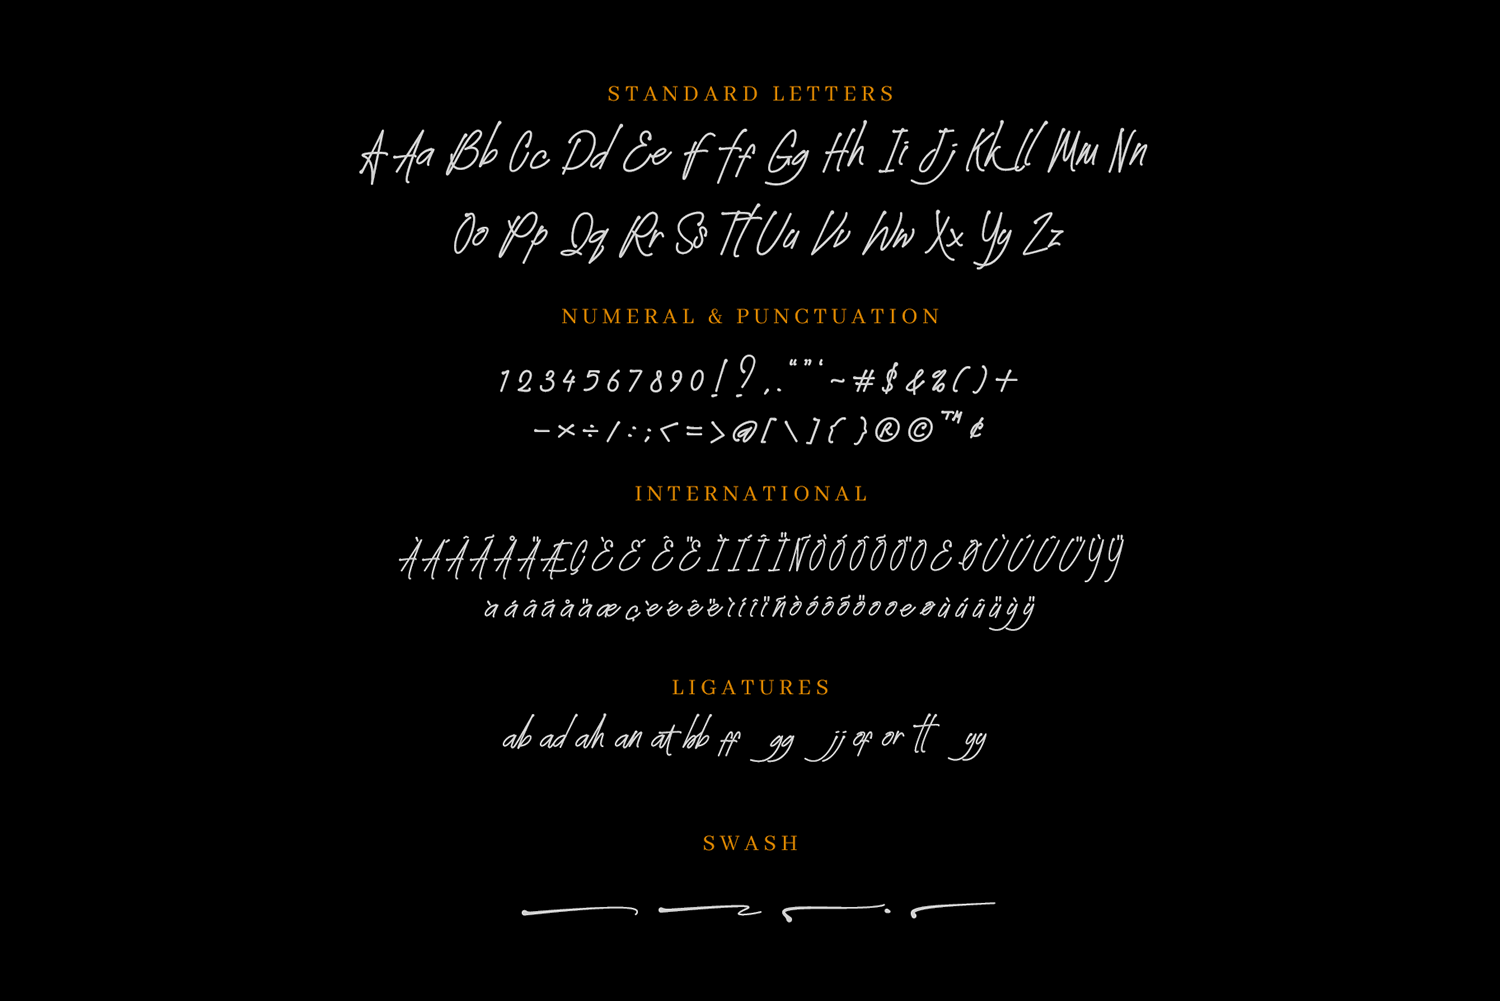 STANDARD LETTERS
A Aa Bb Cc Dd Ee F Ff Gg Hh Ii Jj Kk Ll Mm Nn
Oo Pp Qq Rr Ss Tt Uu Vv Ww Xx Yy Zz
NUMERAL & PUNCTUATION
1 2 3 4 5 6 7 8 9 0 ! ? , . “ ” ‘ ~ # $ & % ( ) +
− × ÷ / : ; < = > @ [ \ ] { } ® © ™ ¢
INTERNATIONAL
À Á Â Ã Å Ä Æ Ç È É Ê Ë Ì Í Î Ï Ñ Ò Ó Ô Õ Ö O E Ø Ù Ú Û Ü Ỳ Ÿ
à á â ã å ä æ ç è é ê ë ì í î ï ñ ò ó ô õ ö o o e ø ù ú û ü ỳ ÿ
LIGATURES
ab ad ah an at bb ff gg jj of or tt yy
SWASH